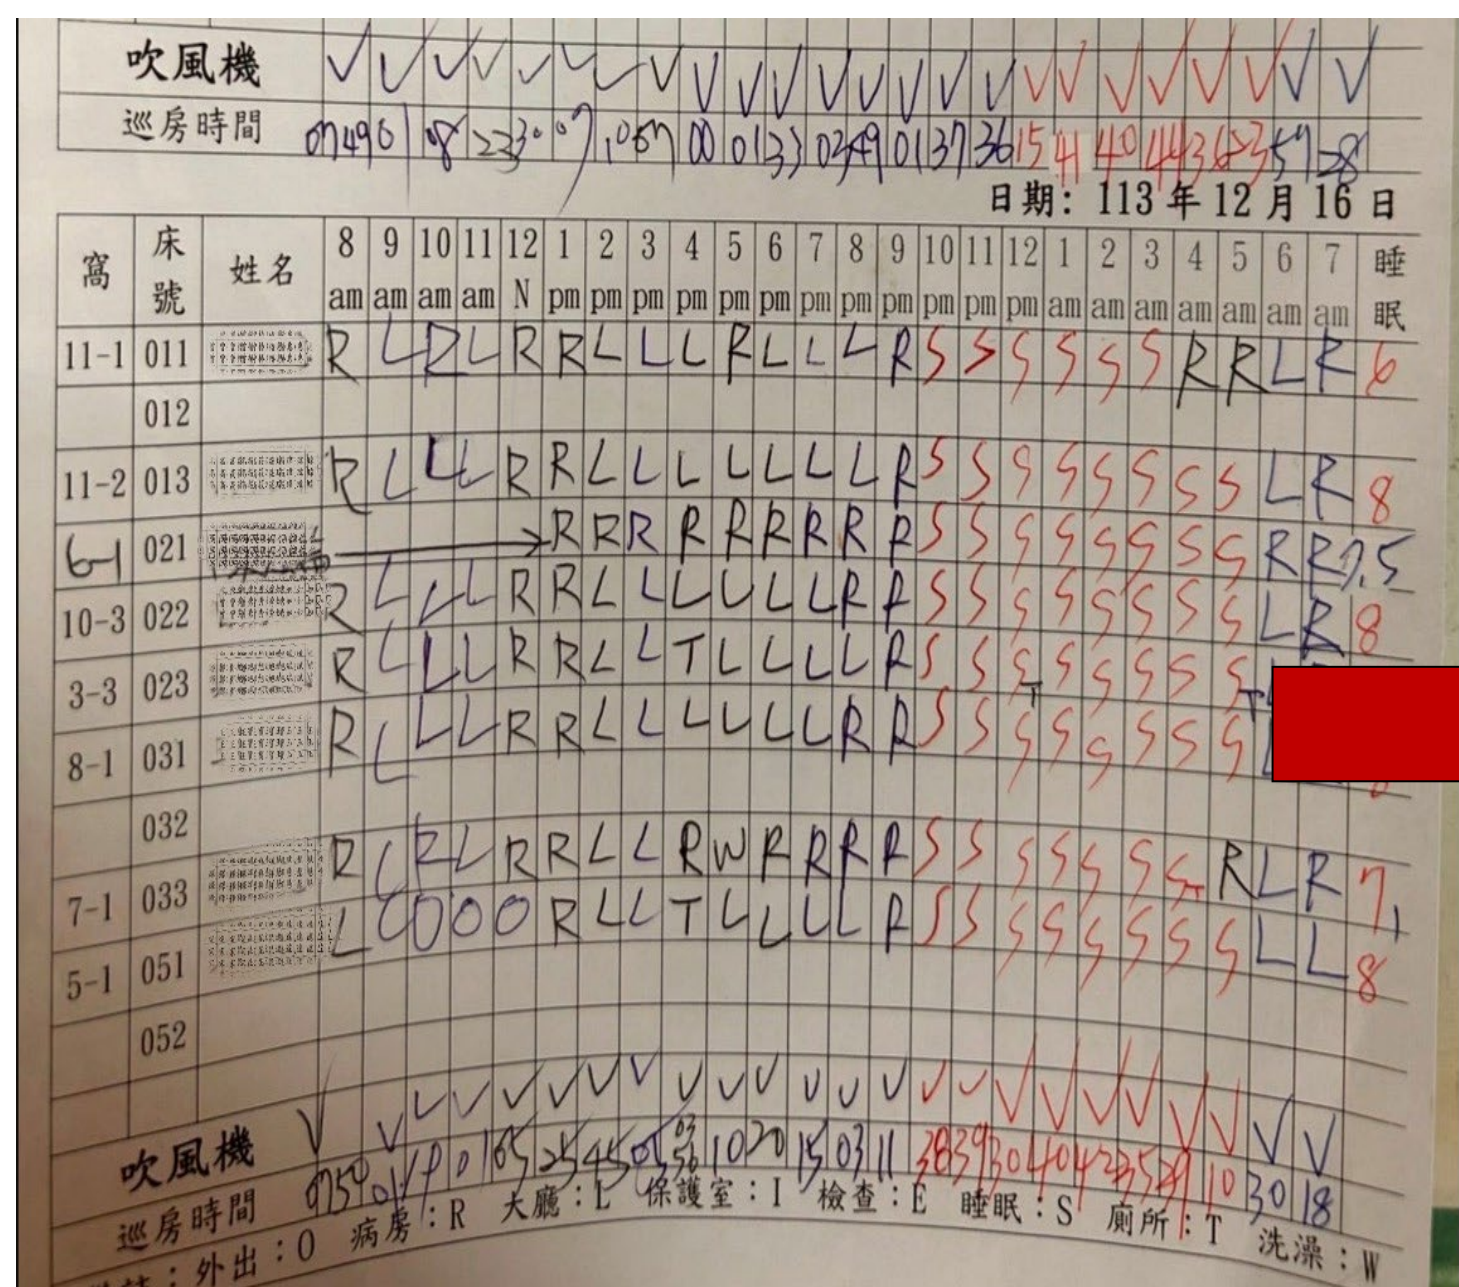 吹風機 ✓ ✓ ✓ ✓ ✓ ✓ ✓ ✓ ✓ ✓ ✓ ✓ ✓ ✓ ✓ ✓ ✓ ✓ ✓ ✓ ✓ ✓ ✓ ✓
巡房時間 0749 01 08 22 30 07 10 57 00 01 33 02 49 01 37 36 15 41 40 44 57 28
日期: 113 年 12 月 16 日
窩 床號 姓名 8am 9am 10am 11am 12N 1pm 2pm 3pm 4pm 5pm 6pm 7pm 8pm 9pm 10pm 11pm 12pm 1am 2am 3am 4am 5am 6am 7am 睡眠
11-1 011 R L R L R R L L L R L L L R S S S S S S R R L R 6
012
11-2 013 R L L L R R L L L L L L L R S S S S S S S S L R 8
6-1 021 → R R R R R R R R R S S S S S S S S R R 7.5
10-3 022 R L L L R R L L L L L L R R S S S S S S S S L R 8
3-3 023 R L L L R R L L T L L L L R S S S T S S S S S T
8-1 031 R L L L R R L L L L L L R R S S S S S S S S L
032
7-1 033 R L R L R R L L R W R R R R S S S S S S S T R L R 7
5-1 051 L O O O O R L L T L L L L R S S S S S S S S L L 8
052
吹風機 ✓ ✓ ✓ ✓ ✓ ✓ ✓ ✓ ✓ ✓ ✓ ✓ ✓ ✓ ✓ ✓ ✓ ✓ ✓ ✓ ✓ ✓ ✓ ✓
巡房時間 0750 01 05 25 45 05 10 20 15 03 11 38 39 30 40 42 35 29 10 30 18
外出:O 病房:R 大廳:L 保護室:I 檢查:E 睡眠:S 廁所:T 洗澡:W